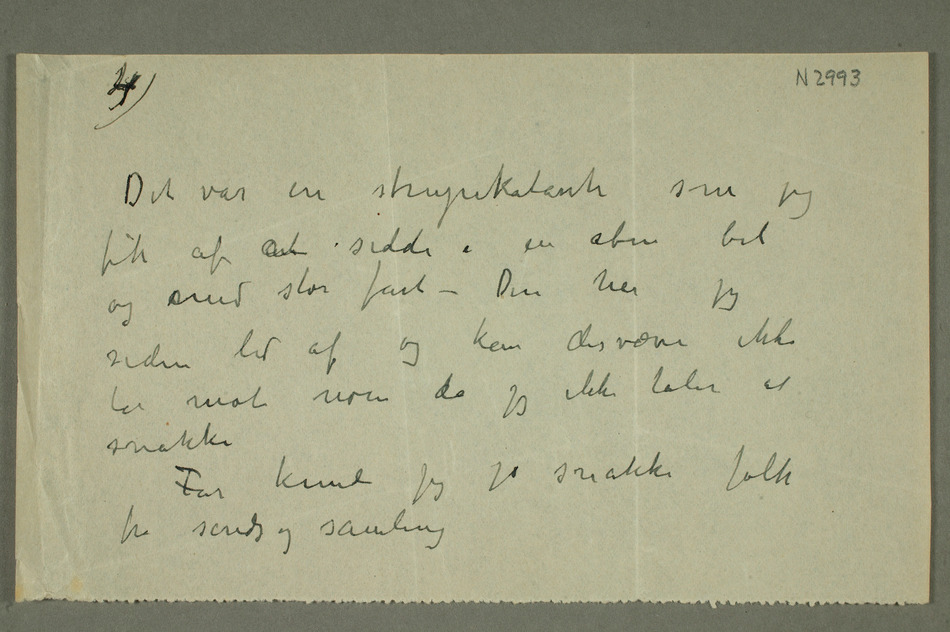 4)
N2993
Det var en strupekatarrh som jeg
fik af at sidde i en åben bil
og med stor fart – Den har jeg
siden lid af og kan desværre ikke
ta mot noen da jeg ikke tåler at
snakke
Før kunde jeg jo snakke folk
fra sands og samling